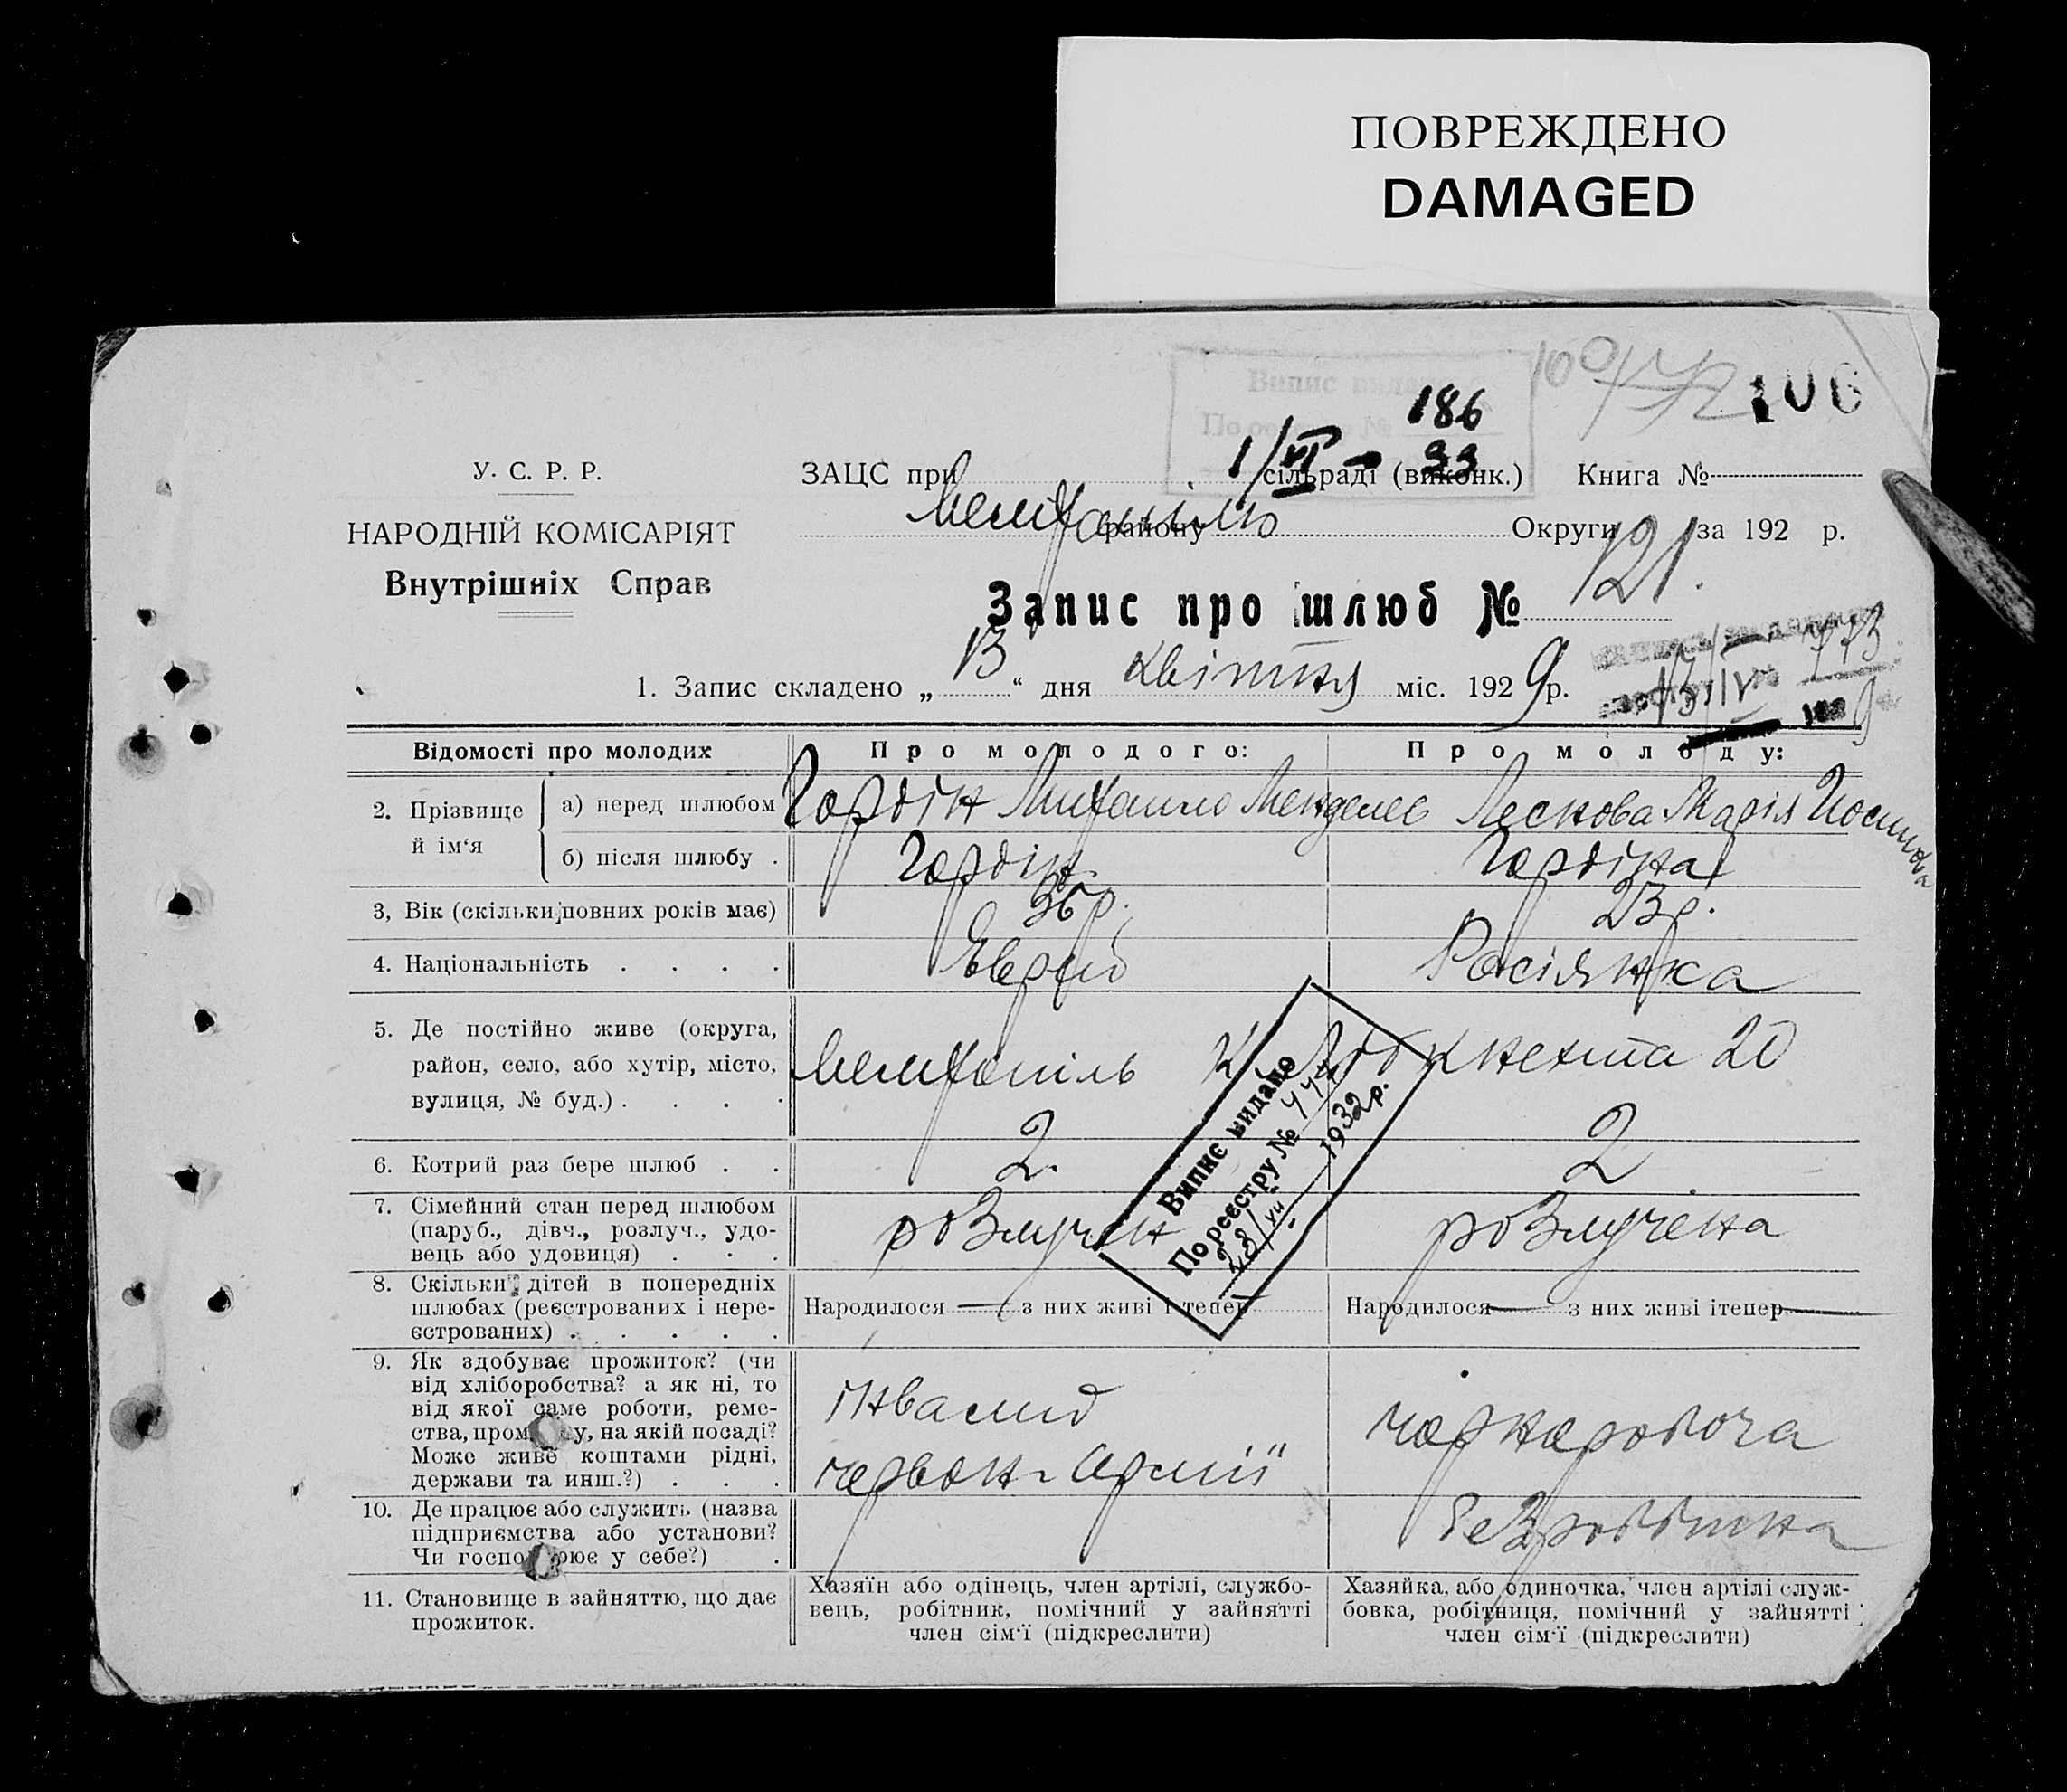 ПОВРЕЖДЕНО
DAMAGED
106
Випис видано
По реєстру №
186
1/VI - 33
У. С. Р. Р.
ЗАЦС при сільраді (виконк.) Книга №
НАРОДНІЙ КОМІСАРІЯТ
району Округи за 192 р.
Внутрішніх Справ
Запис про шлюб № 121.
1. Запис складено „13“ дня квітня міс. 1929 р.
Відомості про молодих
Про молодого:
Про молоду:
2. Прізвище й ім‘я
а) перед шлюбом
Гордін Михайло Менделев
Лескова Марія
б) після шлюбу .
Гордін
Гордіна
3, Вік (скільки повних років має)
36 р.
23 р.
4. Національність . . . .
Єврей
Росіянка
5. Де постійно живе (округа,
район, село, або хутір, місто,
вулиця, № буд.) . . . .
Мелітопіль К. Лібкнехта 20
6. Котрий раз бере шлюб . .
2.
2
7. Сімейний стан перед шлюбом
(паруб., дівч., розлуч., удо-
вець або удовиця) . . .
розлучен
розлучена
Випис видано
По реєстру №
28/VII 1932 р.
8. Скільки дітей в попередніх
шлюбах (реєстрованих і нере-
єстрованих) . . . . .
Народилося — з них живі і тепер
Народилося — з них живі ітепер —
9. Як здобуває прожиток? (чи
від хліборобства? а як ні, то
від якої саме роботи, реме-
ства, промислу, на якій посаді?
Може живе коштами рідні,
держави та инш.?) . . .
інвалид
червон. Армії
чорноробоча
10. Де працює або служить (назва
підприємства або установи?
Чи господарює у себе?) .
безробітна
11. Становище в зайняттю, що дає
прожиток.
Хазяїн або одінець, член артілі, службо-
вець, робітник, помічний у зайнятті
член сім‘ї (підкреслити)
Хазяйка, або одиночка, член артілі служ-
бовка, робітниця, помічний у зайнятті
член сім‘ї (підкреслити)